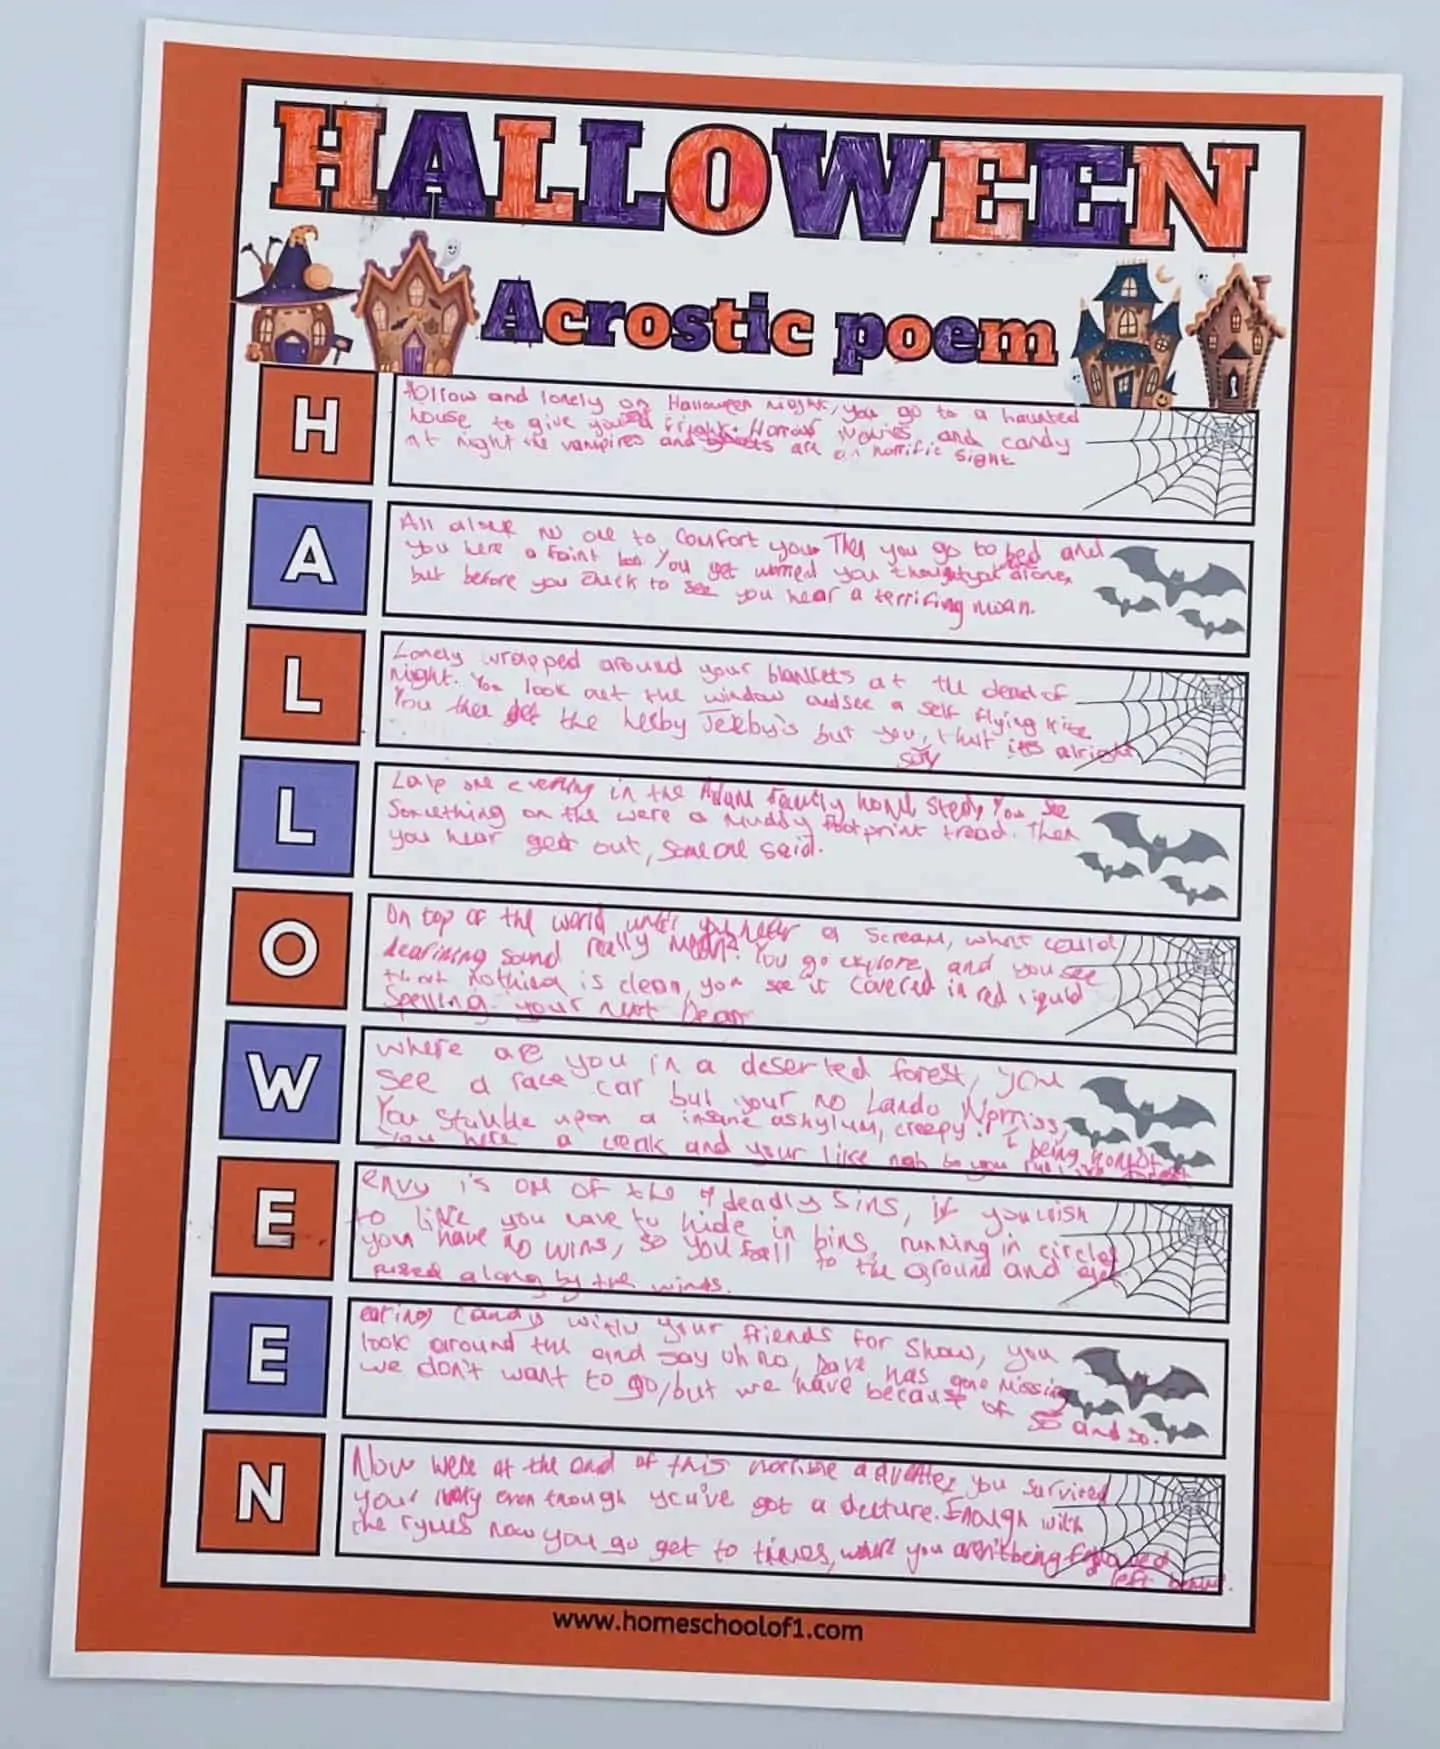 HALLOWEEN
Acrostic poem
H
Hollow and lonely on Halloween night, you go to a haunted
house to give you a fright. Horror Movies and candy
at night the vampires and ghosts are an horrific sight
A
All alone no one to comfort you. Then you go to bed and
you here a faint boo. You get worried you thought alone,
but before you check to see you hear a terrifing moan.
L
Lonely wrapped around your blankets at the dead of
night. You look out the window and see a self flying kite
You then get the heeby Jeeby's but you, that its alright
say
L
Late one evening in the Adam Family home steps You see
Something on the were a muddy footprint tread. Then
you hear get out, someone said.
O
On top of the world until you hear a scream, what could
deafining sound really mean? You go explore and you see
that nothing is clean, you see it covered in red liquid
Spelling your next
W
where are you in a deserted forest, you
see a race car but your no Lando Norriss,
You stubble upon a insane asylum, creepy. I being honest
You here a creak and your like nah
E
envy is one of the 7 deadly Sins, if you wish
to live you have to hide in bins, running in circles
you have no wins, so you fall to the ground and get
pushed along by the winds.
E
eating candy with your friends for show, you
look around the and say uh no, Dave has gone missing
we don't want to go, but we have because of so and so.
N
Now were at the end of this horrible adventer, you survived
your even though you've got a Enough with
the rymes now you go get to times, where you aren't being followed
left
www.homeschoolof1.com